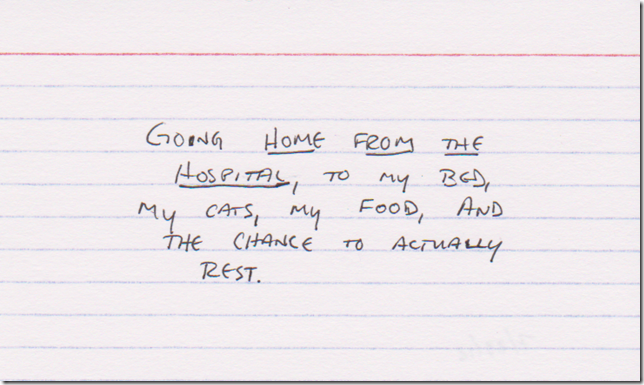 GOING HOME FROM THE
HOSPITAL, TO MY BED,
MY CATS, MY FOOD, AND
THE CHANCE TO ACTUALLY
REST.